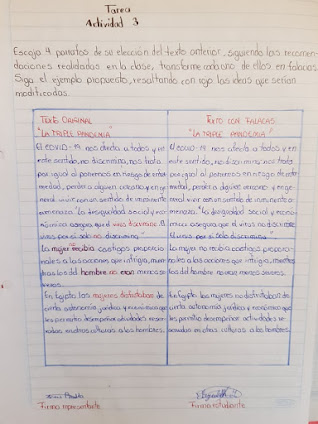 Tarea
Actividad 3
Escoja 4 párrafos de su elección del texto anterior, siguiendo las recomen-
daciones realizadas en la clase, transforme cada uno de ellos en falacias.
Siga el ejemplo propuesto, resaltando con rojo las ideas que serían
modificadas.
TEXTO ORIGINAL
"LA TRIPLE PANDEMIA"
El COVID-19 nos afecta a todos y en
este sentido, no discrimina, nos trata
por igual al ponernos en riesgo de enfer-
medad, perder a alguien cercano y en ge
neral vivir con un sentido de inminente a-
menaza. "La desigualdad social y eco
nómica asegura que el virus discrimine. El
virus por sí solo no discrimina"
La mujer recibía castigos proporcio-
nales a las acciones que infringía, mien-
tras los del hombre no eran menos se
veros.
En Egipto, las mujeres disfrutaban de
cierta autonomía jurídica y económica que
les permitía desempeñar actividades reser-
vadas, en otras culturas a los hombres.
TEXTO CON FALACIAS
"LA TRIPLE PANDEMIA"
El COVID-19 nos afecta a todos y en
este sentido, no discrimina, nos trata
por igual al ponernos en riesgo de enfer
medad, perder a alguien cercano y en ge
neral vivir con un sentido de inminente a-
menaza. "La desigualdad social y econó
mica asegura que el virus no discrimine
El virus por sí solo discrimina"
La mujer no recibía castigos proporcio-
nales a las acciones que infringía, mientras
los del hombre no eran menos severos.
En Egipto las mujeres no disfrutaban de
cierta autonomía jurídica y económica que
les permitía desempeñar actividades re-
servadas en otras culturas a los hombres.
Firma representante
Firma estudiante